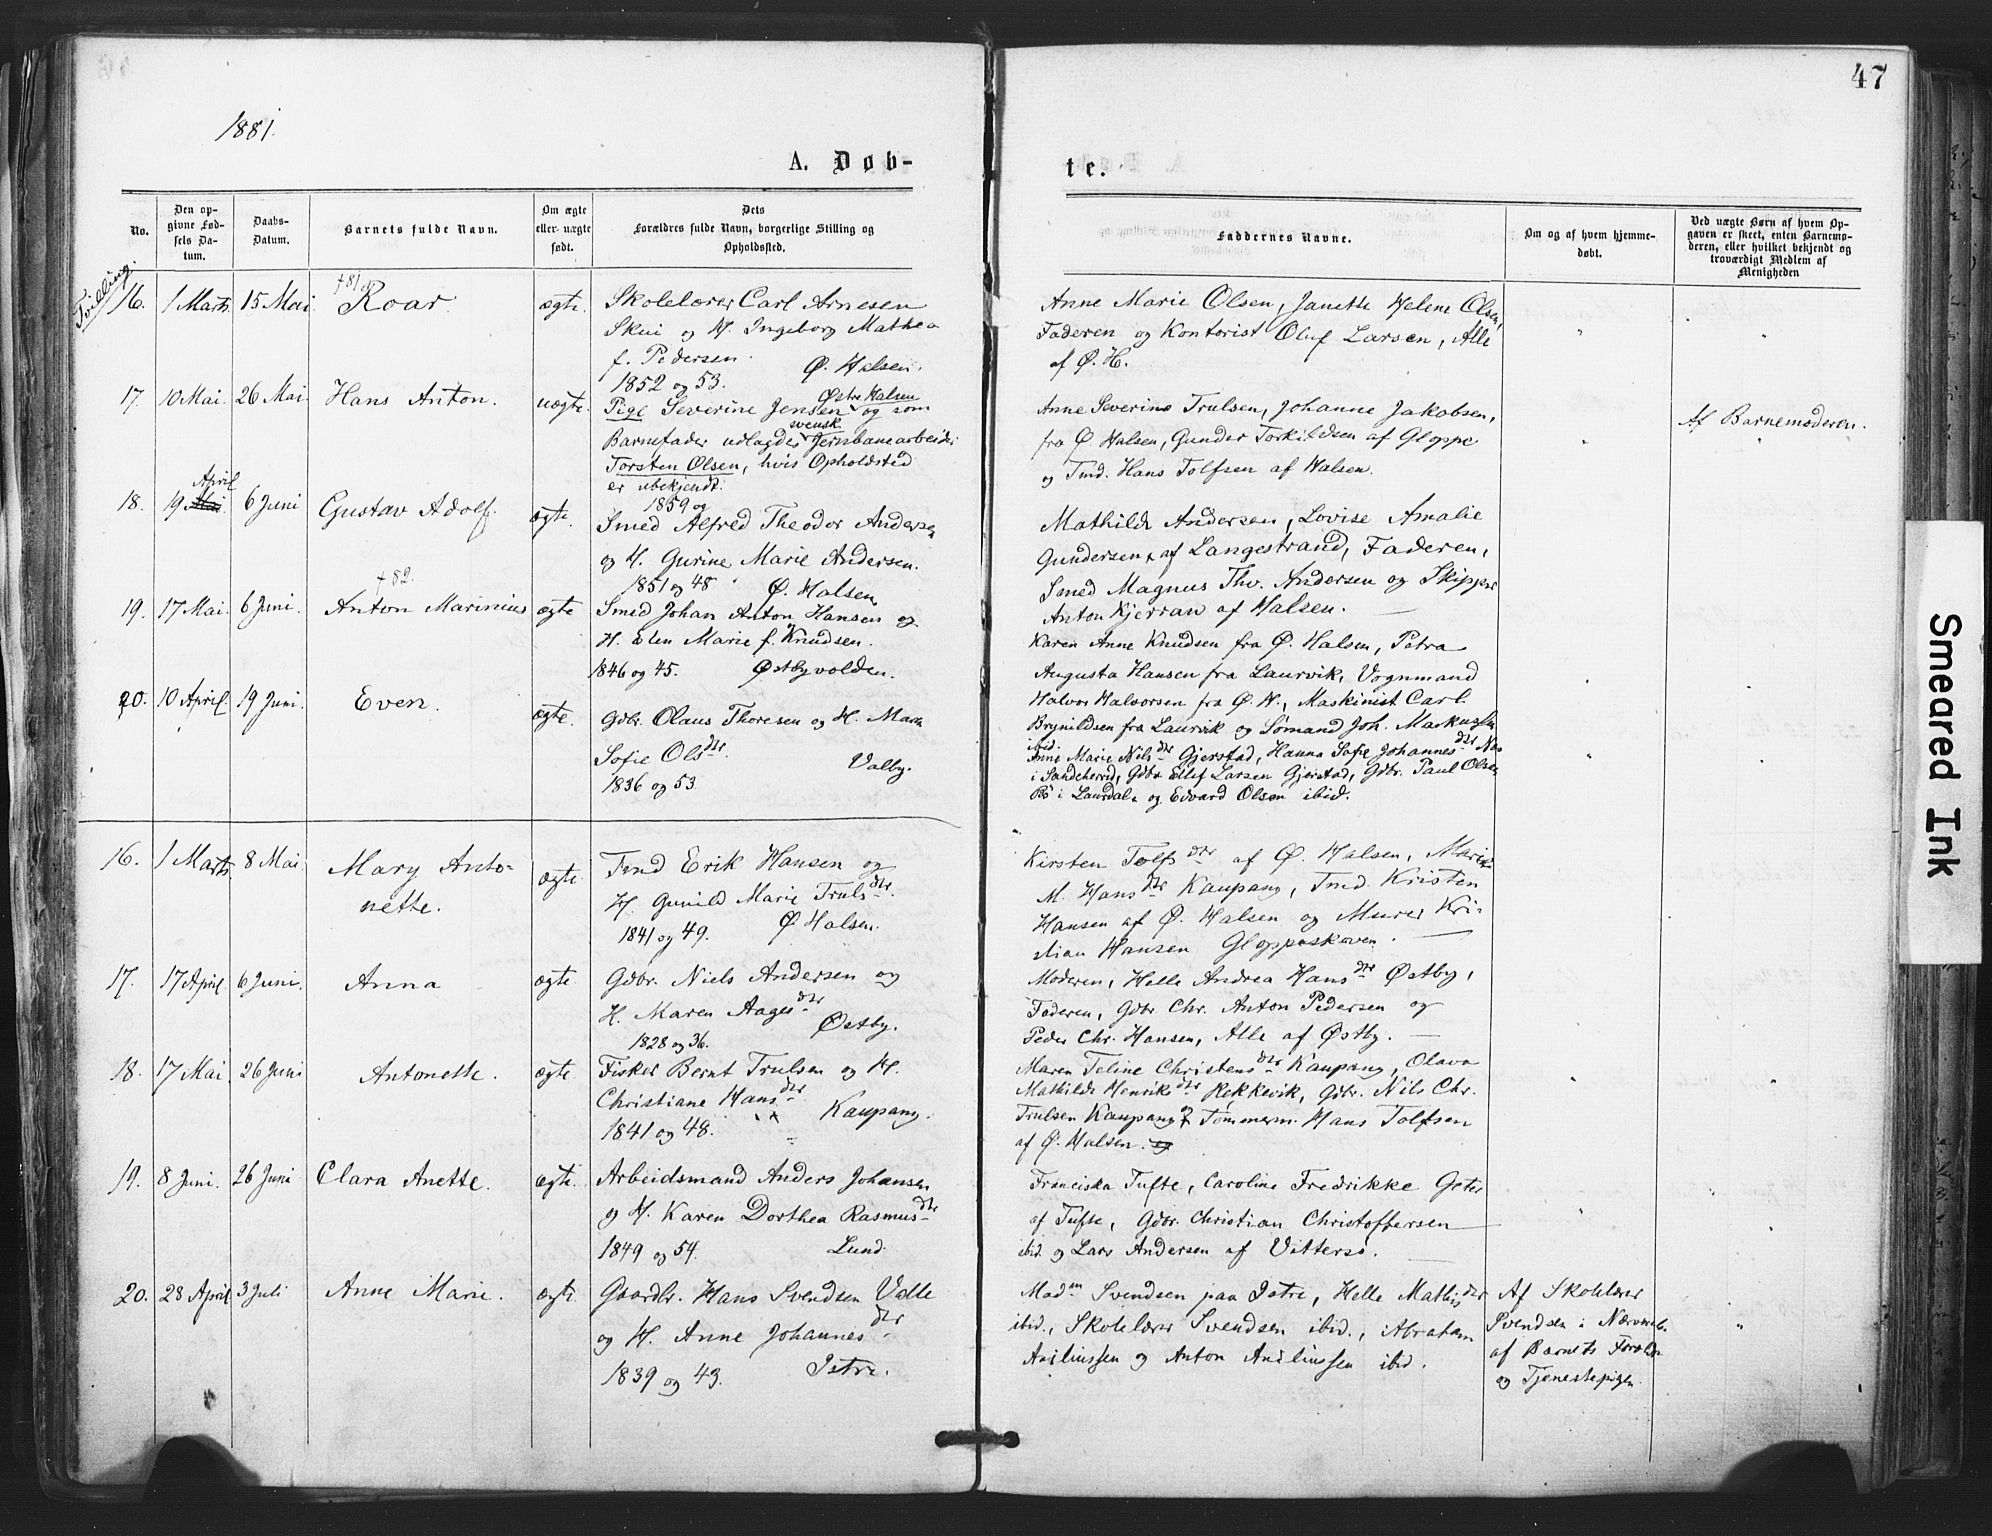 47
1881.
A. Døb-
te.
No.
Den op-
givne Fød-
sels Da-
tum.
Daabs-
Datum.
Barnets fulde Navn.
Om ægte
eller uægte
født.
Dets
Forældres fulde Navn, borgerlige Stilling og
Opholdssted.
Faddernes Navne.
Om og af hvem hjemme-
døbt.
Ved uægte Børn af hvem Op-
gaven er skeet, enten Barnemo-
deren, eller hvilket bekjendt og
troværdigt Medlem af
Menigheden
Tvilling.
16. 1 Marts 15 Mai
†81
Roar.
ægte.
Skolelærer Carl Arnesen
Skui og H. Ingeborg Mathea
f. Pedersen.
Ø. Halsen.
1852 og 53.
Anne Marie Olsen, Janette Helene Olsen,
Faderen og Kontorist Oluf Larsen, Alle
af Ø. H.
17. 10 Mai. 26 Mai
Hans Anton.
uægte.
Østre Halsen
Pige Severine Jensen og som
svensk
Barnefader udlagdes Jernbanearbeider
Torsten Olsen, hvis Opholdsted
er ubekjendt.
1859 og
Anne Severine Trulsen, Johanne Jakobsen,
fra Ø Halsen, Gunder Torkildsen af Gloppe
og Tmd. Hans Tolfsen af Halsen.
Af Barnemoderen.
April
18. 19 Mai. 6 Juni
Gustav Adolf.
ægte.
Smed Alfred Theodor Andersen
og H. Gurine Marie Andersen.
1851 og 48 Ø. Halsen
Mathilde Andersen, Lovise Amalie
Gundersen, af Langestrand, Faderen,
Smed Magnus Thv. Andersen og Skipper
Anton Kjerran af Halsen.
19. 17 Mai. 6 Juni.
†82.
Anton Marinius
ægte
Smed Johan Anton Hansen og
H. Elen Marie f. Knudsen.
1846 og 45. Østbyvolden.
Karen Anne Knudsen fra Ø. Halsen, Petra
Augusta Hansen fra Laurvik, Vognmand
Halvor Halvorsen fra Ø. H., Maskinist Carl
Brynildsen fra Laurvik og Sømand Joh. Markussen
ibid.
20. 10 April. 19 Juni.
Even.
ægte.
Gdbr. Olaus Thoresen og H. Maren
Sofie Olsdtr.
Valby.
1836 og 53
Anne Marie Nilsdtr Gjerstad, Hanna Sofie Johannesdtr Næs
i Sandeherred, Gdbr. Ellef Larsen Gjerstad, Gdbr. Paul Olsen
Bø i Laurdal, og Edvard Olsen ibid.
16. 1 Marts. 8 Mai
Mary Anto-
nette.
ægte
Tmd Erik Hansen og
H. Gunild Marie Trulsdtr.
1841 og 49. Ø Halsen.
Kirsten Tolfsdtr af Ø. Halsen, Maria
M. Hansdtr Kaupang, Tmd. Kristen
Hansen af Ø. Halsen og Murer Kri-
stian Hansen Gloppeskoven.
17. 17 April. 6 Juni.
Anna
ægte.
Gdbr. Niels Andersen og
H. Maren Aagesdtr
Østby.
1828 og 36.
Moderen, Helle Andrea Hansdtr Østby,
Faderen, Gdbr Chr. Anton Pedersen og
Peder Chr. Hansen, Alle af Østby.
18. 17 Mai 26 Juni
Antonette.
ægte.
Fisker Bernt Trulsen og H.
Christiane Hansdtr
Kaupang.
1841 og 48.
Maren Teline Christensdtr Kaupang, Olava
Mathilde Henriksdtr Rekkevik, Gdbr. Nils Chr.
Trulsen Kaupang og Tømmerm. Hans Tolfsen
af Ø. Halsen. og
19. 8 Juni. 26 Juni
Clara Anette.
ægte.
Arbeidsmand Anders Johansen
og H. Karen Dorthea Rasmusdtr
1849 og 54. Lund.
Franciska Tufte, Caroline Fredrikke Geter
af Tufte, Gdbr. Christian Christoffersen
ibid. og Lars Andersen af Vittersø.
20. 28 April 3 Juli
Anne Marie.
ægte.
Gaardbr. Hans Svendsen Valle
og H. Anne Johannesdtr
1839 og 43. Istre.
Madm Svendsen paa Istre, Helle Mathisdtr
ibid., Skolelærer Svendsen ibid., Abraham
Anton ibid.
Af Skolelærer
Svendsen i Nærværelse
af Barnets Forældre
og Tjenestepigen.
Smeared Ink